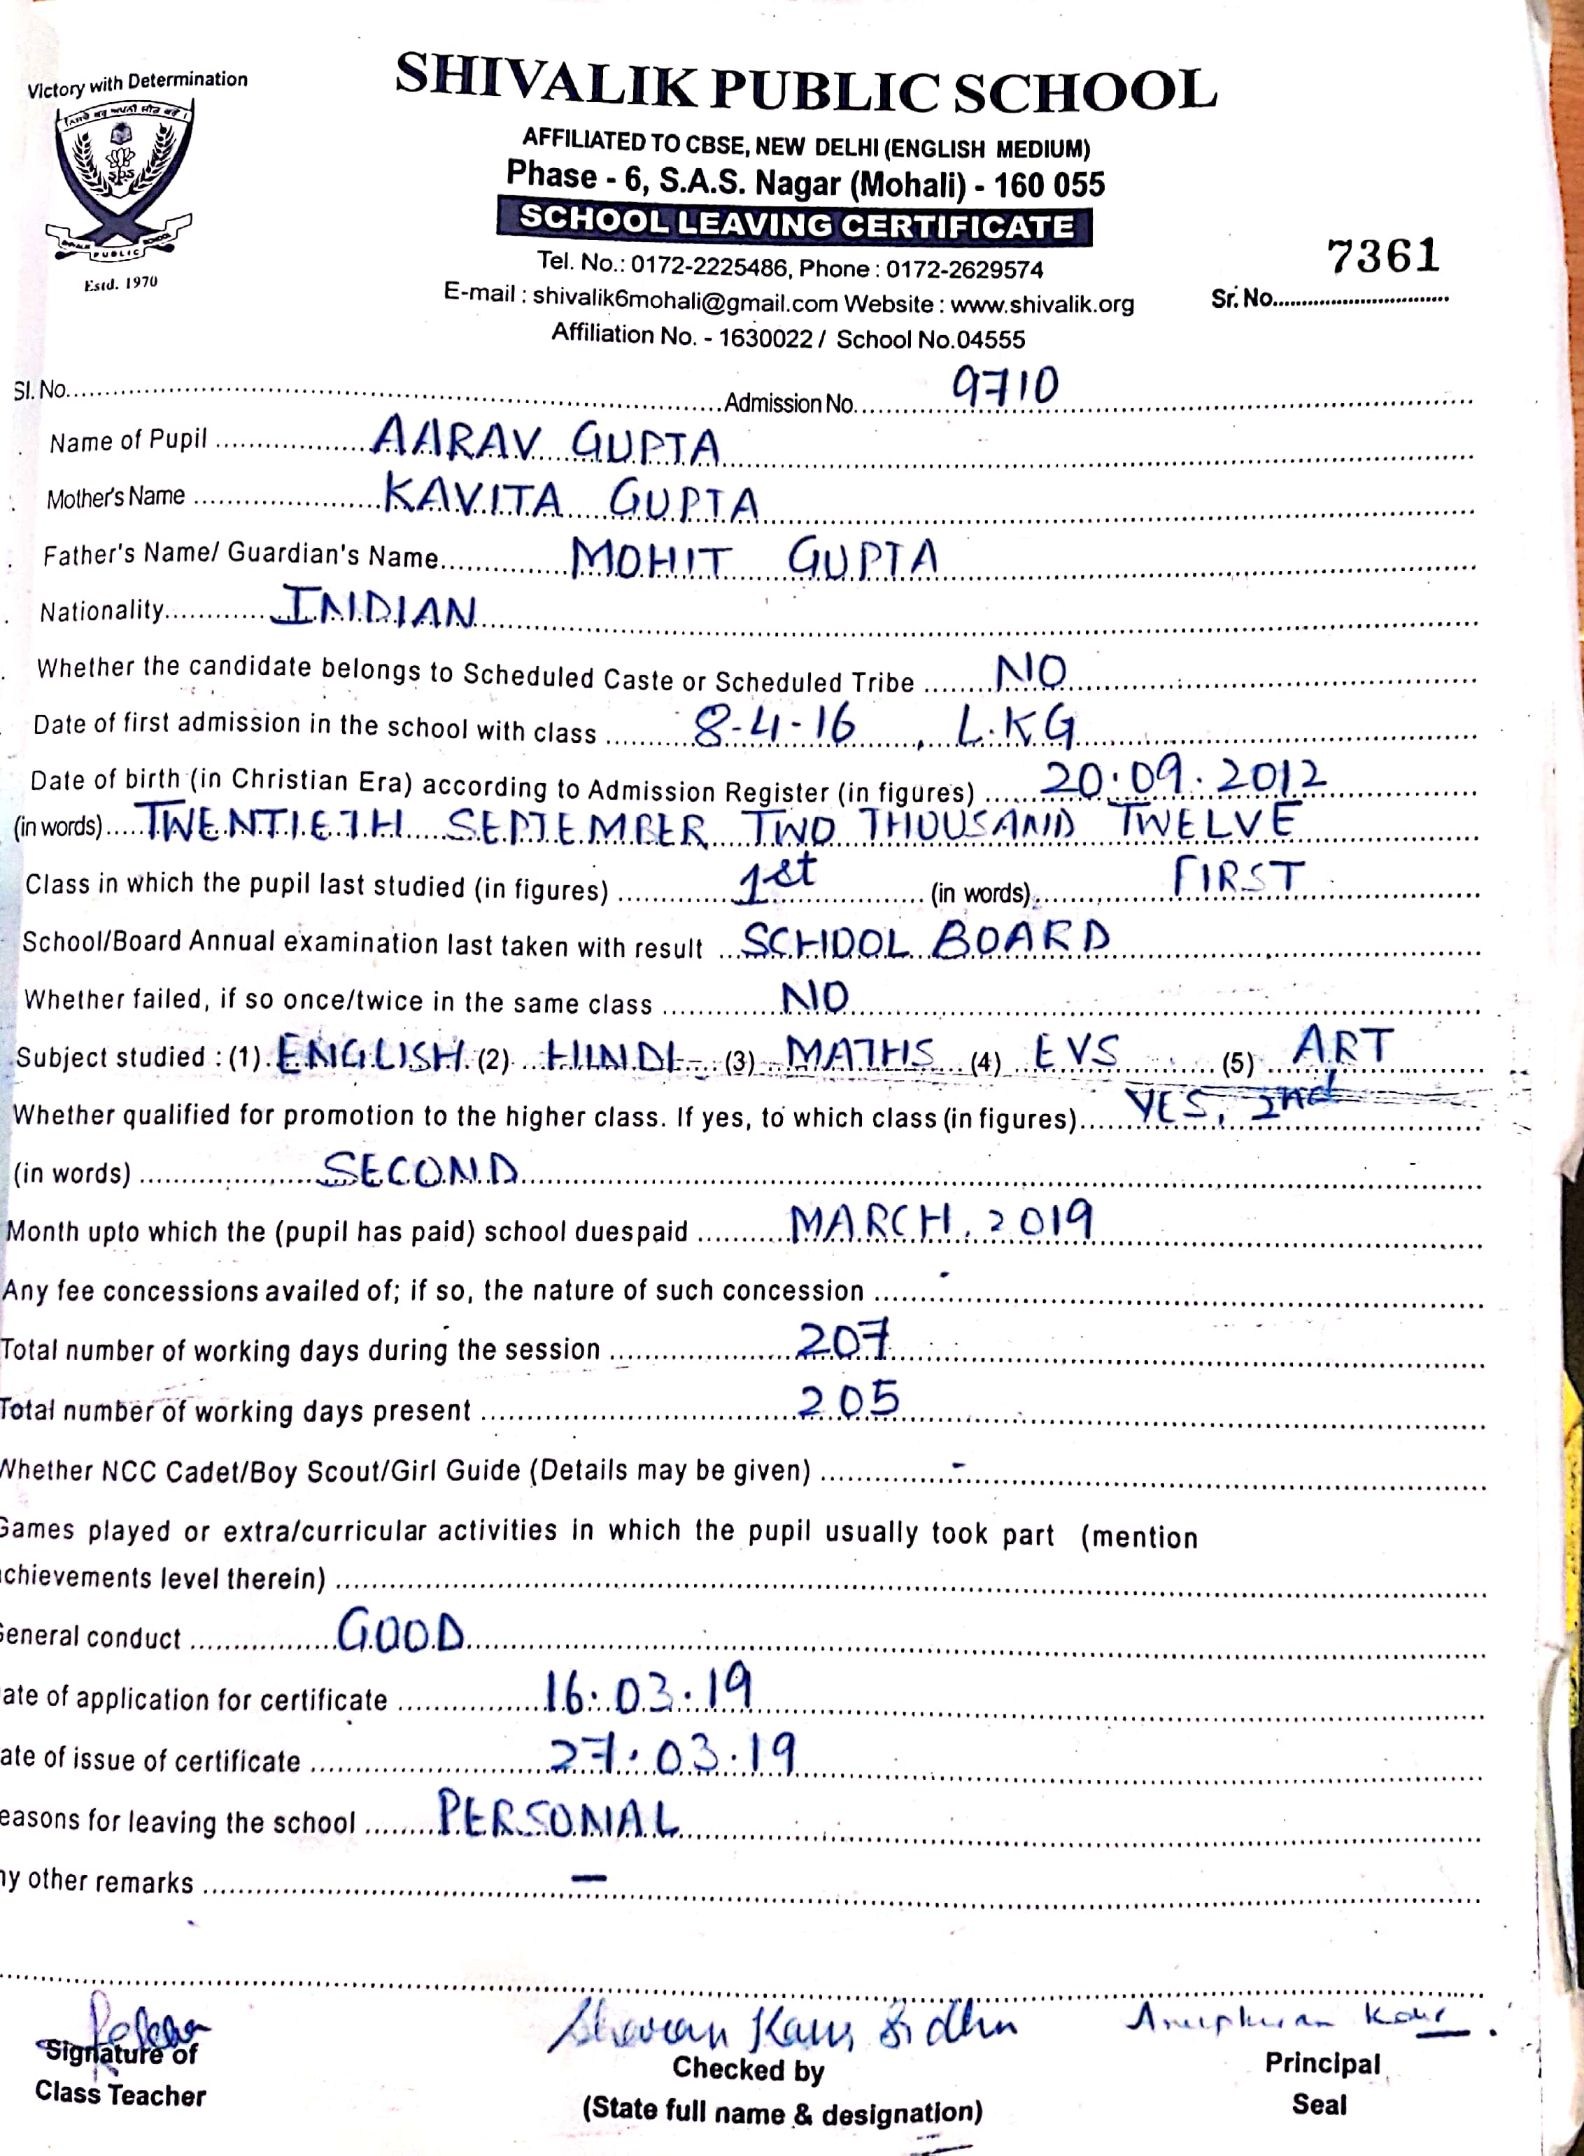 Victory with Determination
SHIVALIK PUBLIC SCHOOL
AFFILIATED TO CBSE, NEW DELHI (ENGLISH MEDIUM)
Phase - 6, S.A.S. Nagar (Mohali) - 160 055
SCHOOL LEAVING CERTIFICATE
SPS
SHIVALIK PUBLIC SCHOOL
Estd. 1970
Tel. No.: 0172-2225486, Phone : 0172-2629574
7361
E-mail : shivalik6mohali@gmail.com Website : www.shivalik.org
Sr. No.
Affiliation No. - 1630022 / School No.04555
Sl. No. Admission No. 9710
Name of Pupil AARAV GUPTA
Mother's Name KAVITA GUPTA
Father's Name/ Guardian's Name MOHIT GUPTA
Nationality INDIAN
Whether the candidate belongs to Scheduled Caste or Scheduled Tribe NO
Date of first admission in the school with class 8-4-16, L.KG
Date of birth (in Christian Era) according to Admission Register (in figures) 20.09.2012
(in words) TWENTIETH SEPTEMBER TWO THOUSAND TWELVE
Class in which the pupil last studied (in figures) 1st (in words) FIRST
School/Board Annual examination last taken with result SCHOOL BOARD
Whether failed, if so once/twice in the same class NO
Subject studied : (1) ENGLISH (2) HINDI (3) MATHS (4) EVS (5) ART
Whether qualified for promotion to the higher class. If yes, to which class (in figures) YES, 2nd
(in words) SECOND
Month upto which the (pupil has paid) school duespaid MARCH, 2019
Any fee concessions availed of; if so, the nature of such concession -
Total number of working days during the session 207
Total number of working days present 205
Whether NCC Cadet/Boy Scout/Girl Guide (Details may be given) -
Games played or extra/curricular activities in which the pupil usually took part (mention
chievements level therein)
General conduct GOOD
ate of application for certificate 16.03.19
ate of issue of certificate 27.03.19
easons for leaving the school PERSONAL
ny other remarks —
Sharan Kaur Sidhu
Anuphuran Kaur
Signature of
Class Teacher
Checked by
(State full name & designation)
Principal
Seal